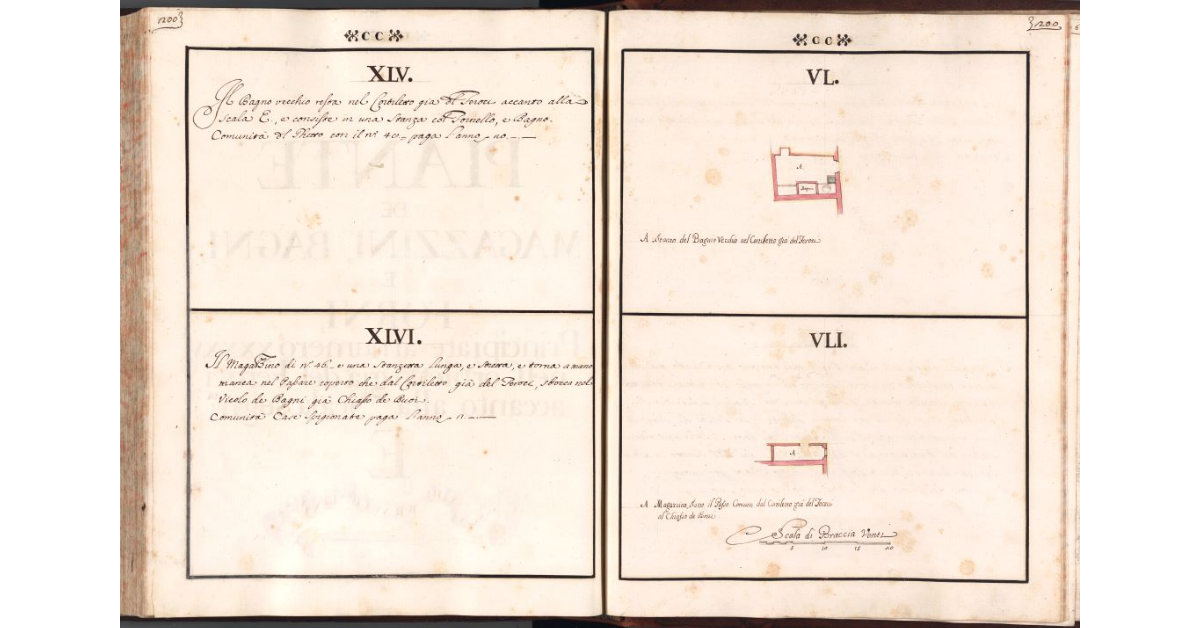 1200
CC
XLV.
Il Bagno vecchio resta nel Cortiletto già del Feroci accanto alla
Scala E, e consiste in una Stanza col Fornello, e Bagno.
Comunità del Ghetto con il nº 40 paga l'anno
XLVI.
Il Magazzino di nº 46 e una Stanzetta lunga, e stretta, e torna a mano
manca nel Passare coperto che dal Cortiletto già del Feroci, sbocca nel
Vicolo de Bagni già Chiasso de Buoi.
Comunità Case spigionate paga l'anno
1200
CC
VL.
A.
Bagno
A Stanza del Bagno Vecchio nel Cortiletto già del Feroci
VLI.
A
A Magazzino, sotto il Passo Comune dal Cortiletto già del Feroci
al Chiasso de
Scala di Braccia Venti
5 10 15 20